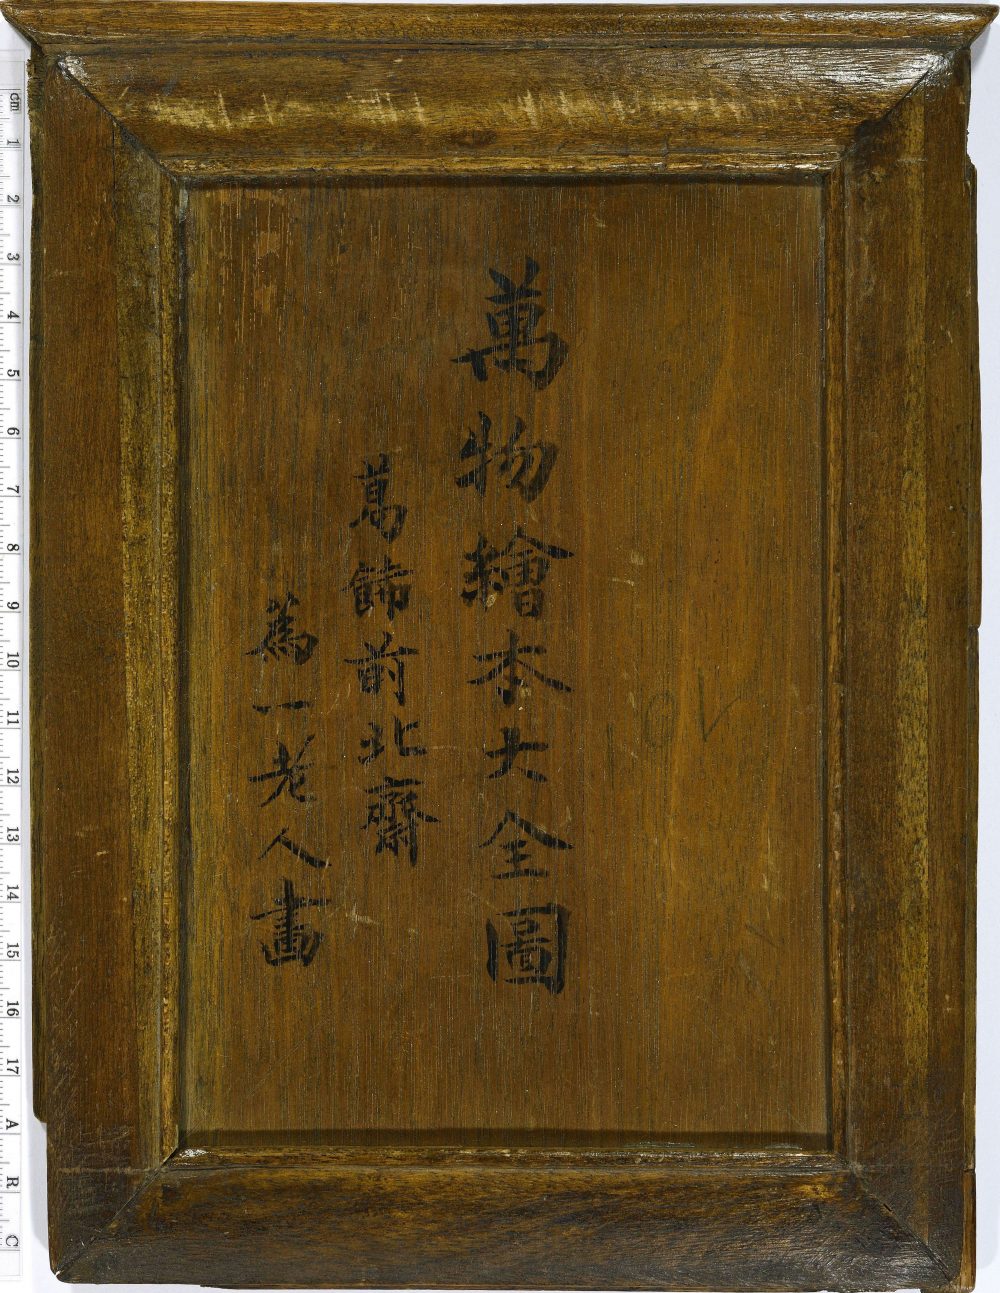 萬物繪本大全圖
葛飾前北齋
爲一老人畫
cm 1 2 3 4 5 6 7 8 9 10 11 12 13 14 15 16 17 A R C